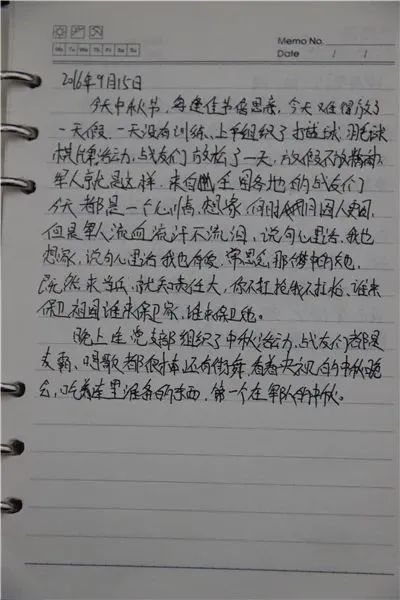 Memo No.
Mo Tu We Th Fr Sa Su
Date / /
2016年9月15日
今天中秋节，每逢佳节倍思亲，今天难得放了
一天假，一天没有训练、上午组织了打篮球，羽毛球
棋牌活动，战友们放松了一天，放假不放精神，
军人就是这样，来自全国各地的战友们
今天都是一个心情，想家，何时月圆人更圆，
但是军人流血流汗不流泪，说句心里话，我也
想家，说句心里话我也有爱，常思念那
既然来当兵，就知责任大，你不扛枪我不扛枪、谁来
保卫祖国谁来保卫家，谁来保卫她。
晚上连党支部组织了中秋活动，战友们都是
麦霸、唱歌都很棒还有街舞，看着央视的中秋晚
会，吃着连里准备的东西，第一个在军队的中秋。